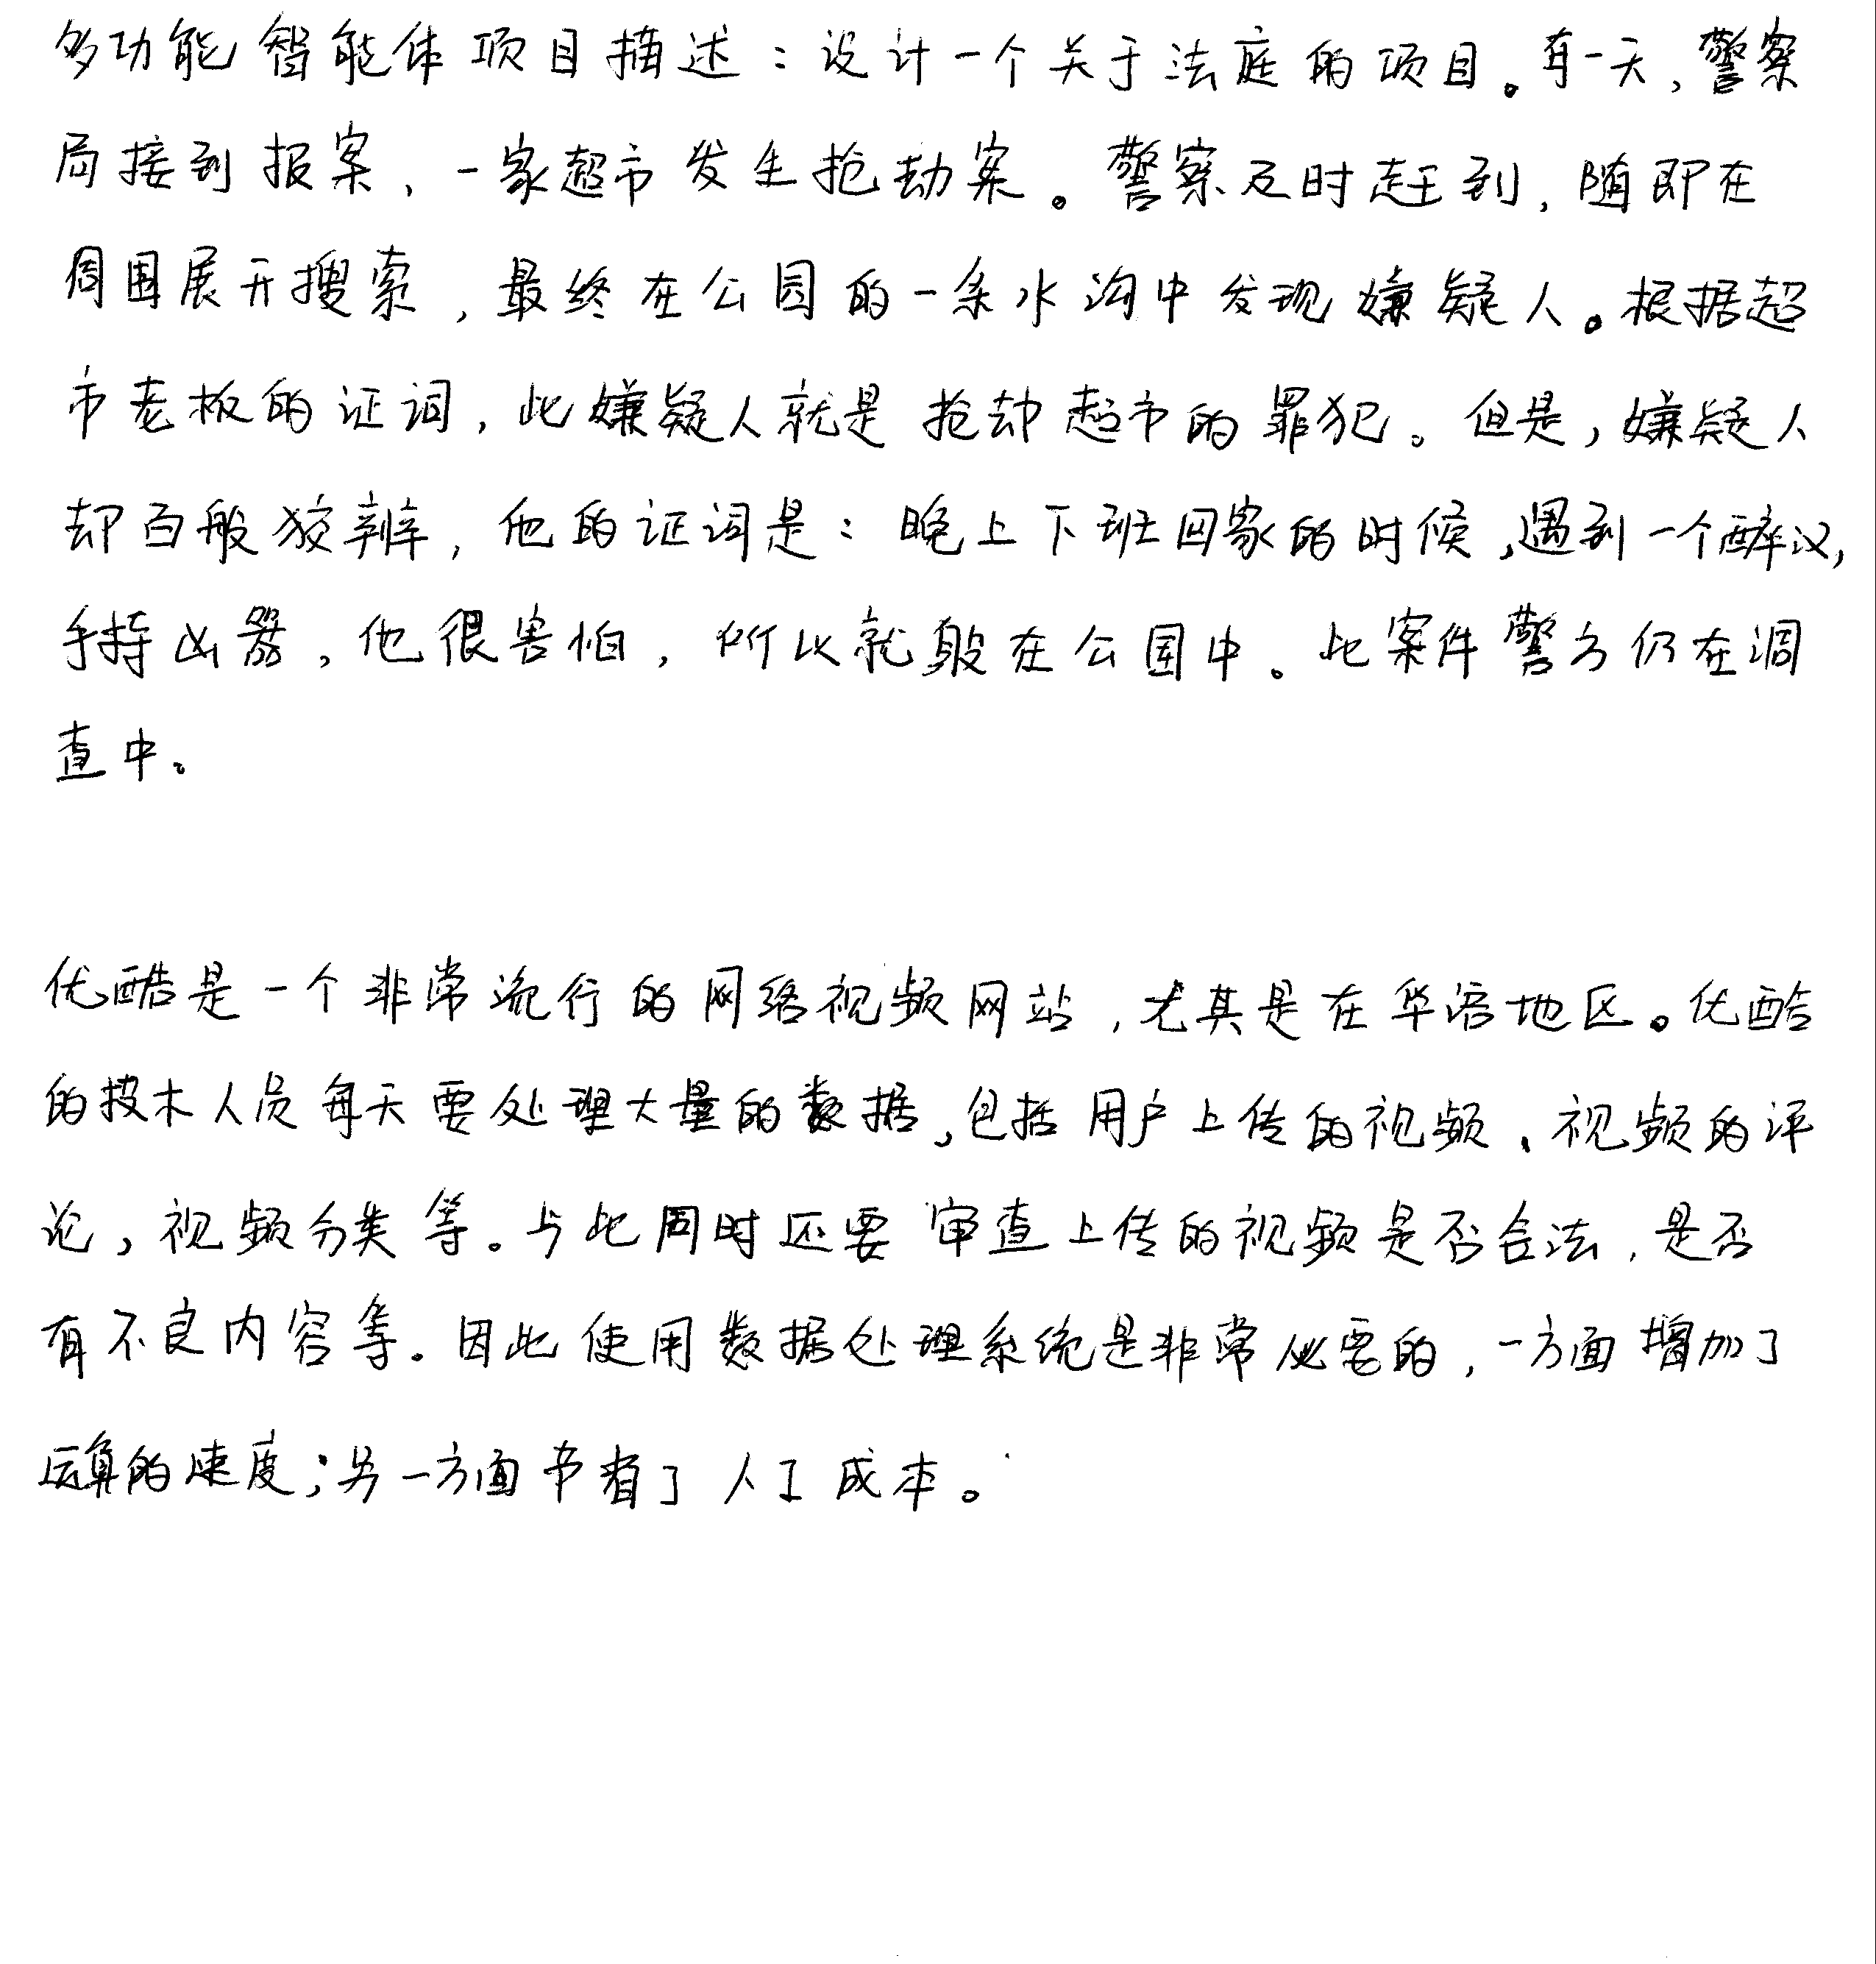 多功能智能体项目描述：设计一个关于法庭的项目。有一天，警察
局接到报案，一家超市发生抢劫案。警察及时赶到，随即在
周围展开搜索，最终在公园的一条水沟中发现嫌疑人。根据超
市老板的证词，此嫌疑人就是抢劫超市的罪犯。但是，嫌疑人
却百般狡辨，他的证词是：晚上下班回家的时候，遇到一个醉汉，
手持凶器，他很害怕，所以就躲在公园中。此案件警方仍在调
查中。
优酷是一个非常流行的网络视频网站，尤其是在华语地区。优酷
的技术人员每天要处理大量的数据，包括用户上传的视频、视频的评
论，视频分类等。与此同时还要审查上传的视频是否合法，是否
有不良内容等。因此使用数据处理系统是非常必要的，一方面增加了
运算的速度；另一方面节省了人工成本。